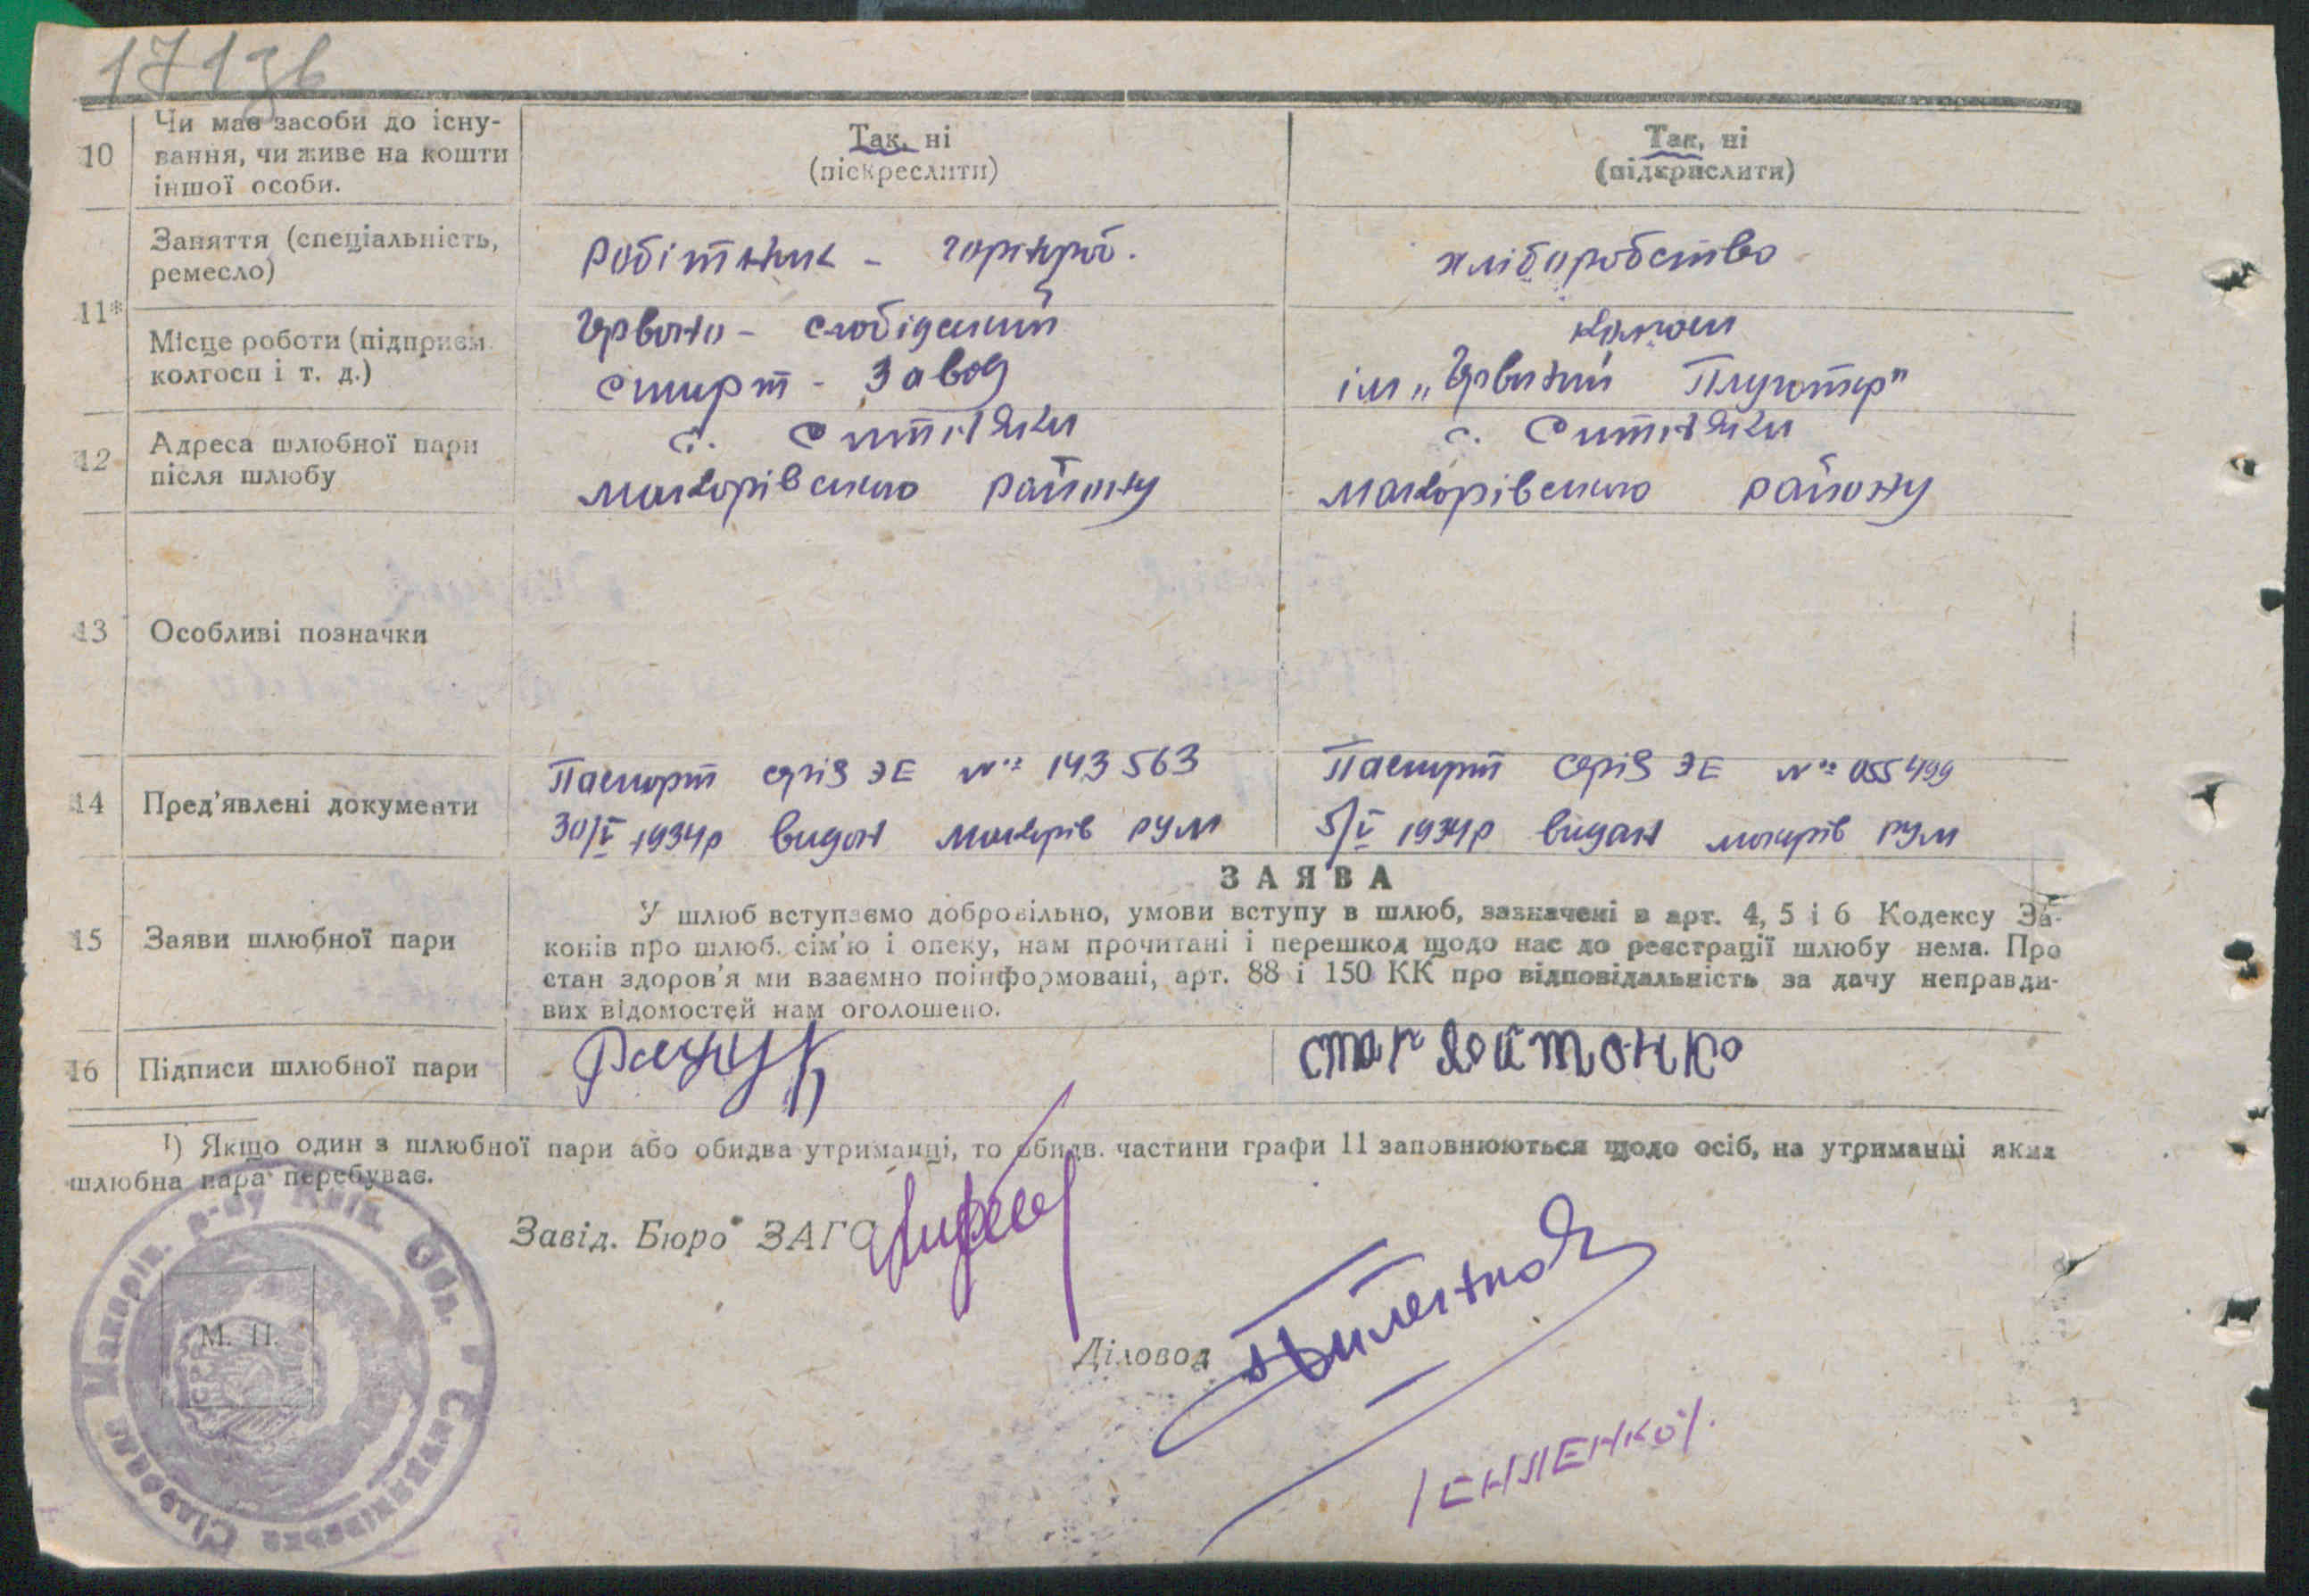 171зв
10
Чи має засоби до існу-
вання, чи живе на кошти
іншої особи.
Так, ні
(піскреслити)
Так, ні
(підкрислити)
11*
Заняття (спеціальність,
ремесло)
Робітник - чорнроб.
хліборобство
Місце роботи (підприєм.
колгосп і т. д.)
Червоно - слобідський
спирт - завод
колгосп
ім „Червоний Плугатир"
12
Адреса шлюбної пари
після шлюбу
с. Ситняки
макорівського району
с. Ситняки
макорівського району
13
Особливі позначки
14
Пред'явлені документи
Паспорт серія ЭЕ № 143563
30/V 1934р видан макорів РУМ
Паспорт серія ЭЕ № 055499
5/V 1934р видан макорів РУМ
15
Заяви шлюбної пари
ЗАЯВА
У шлюб вступаємо добровільно, умови вступу в шлюб, зазначені в арт. 4, 5 і 6 Кодексу За-
конів про шлюб. сім'ю і опеку, нам прочитані і перешкод щодо нас до реєстрації шлюбу нема. Про
стан здоров'я ми взаємно поінформовані, арт. 88 і 150 КК про відповідальність за дачу неправди-
вих відомостей нам оголошено.
16
Підписи шлюбної пари
¹) Якщо один з шлюбної пари або обидва утриманці, то обидв. частини графи 11 заповнюються щодо осіб, на утриманні яких
шлюбна пара перебуває.
Завід. Бюро ЗАГС
М. П.
Діловод
Макорів. р-ну Київ. Обл.
Сільрада